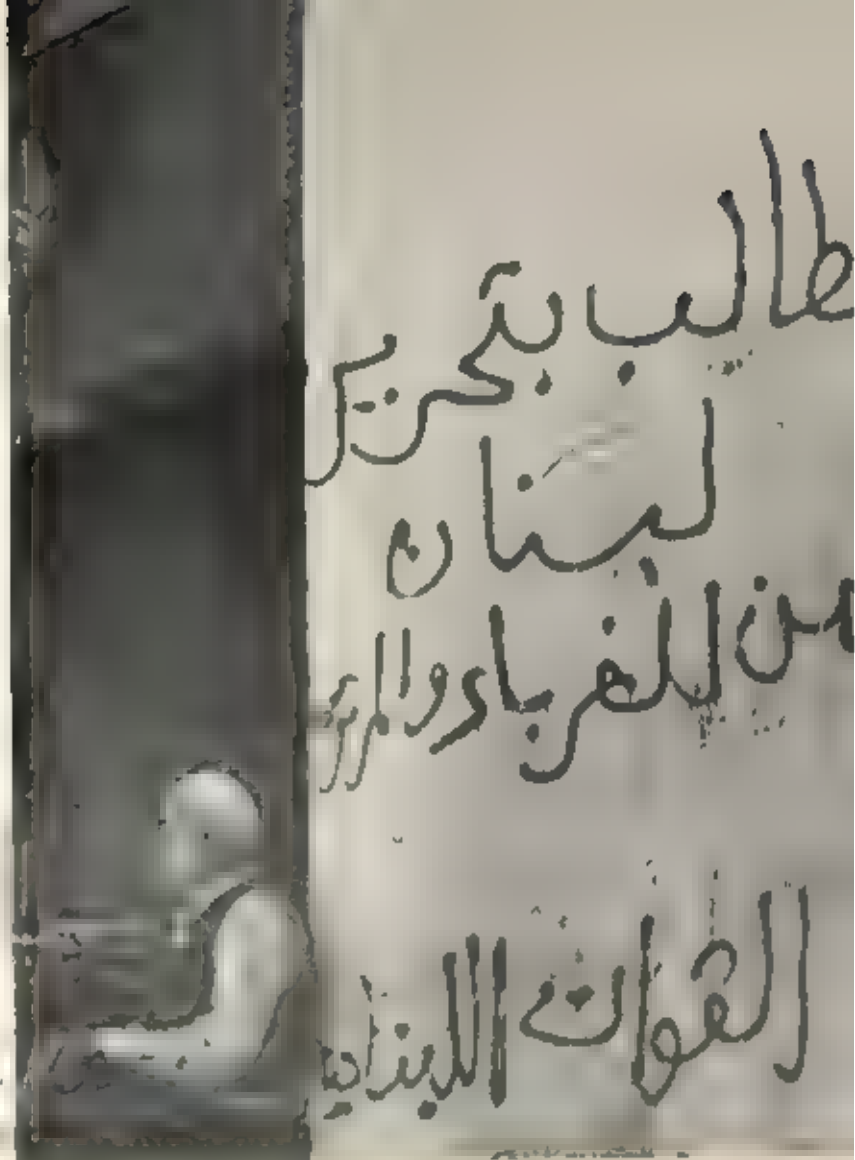 طالب بتحرير
لبنان
من الغرباء والمر
القوات اللبنانيه